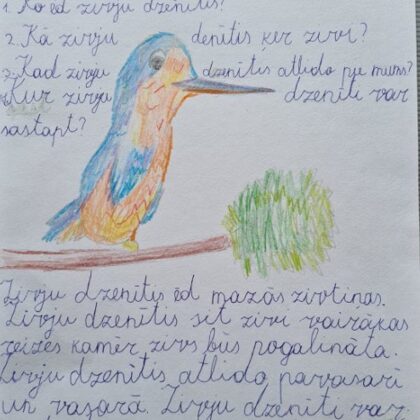 1. Ko ēd zivju dzenītis?
2. Kā zivju denītis ķer zivi?
3. Kad zivju dzenītis atlido pie mums?
4. Kur zivju dzenīti var
sastapt?
Zivju dzenītis ēd mazās zivtiņas.
Zivju dzenītis sit zivi vairākas
reizes kamēr zivs būs pogalināta.
Zivju dzenītis atlido pavasarī
un vasarā. Zivju dzenīti var